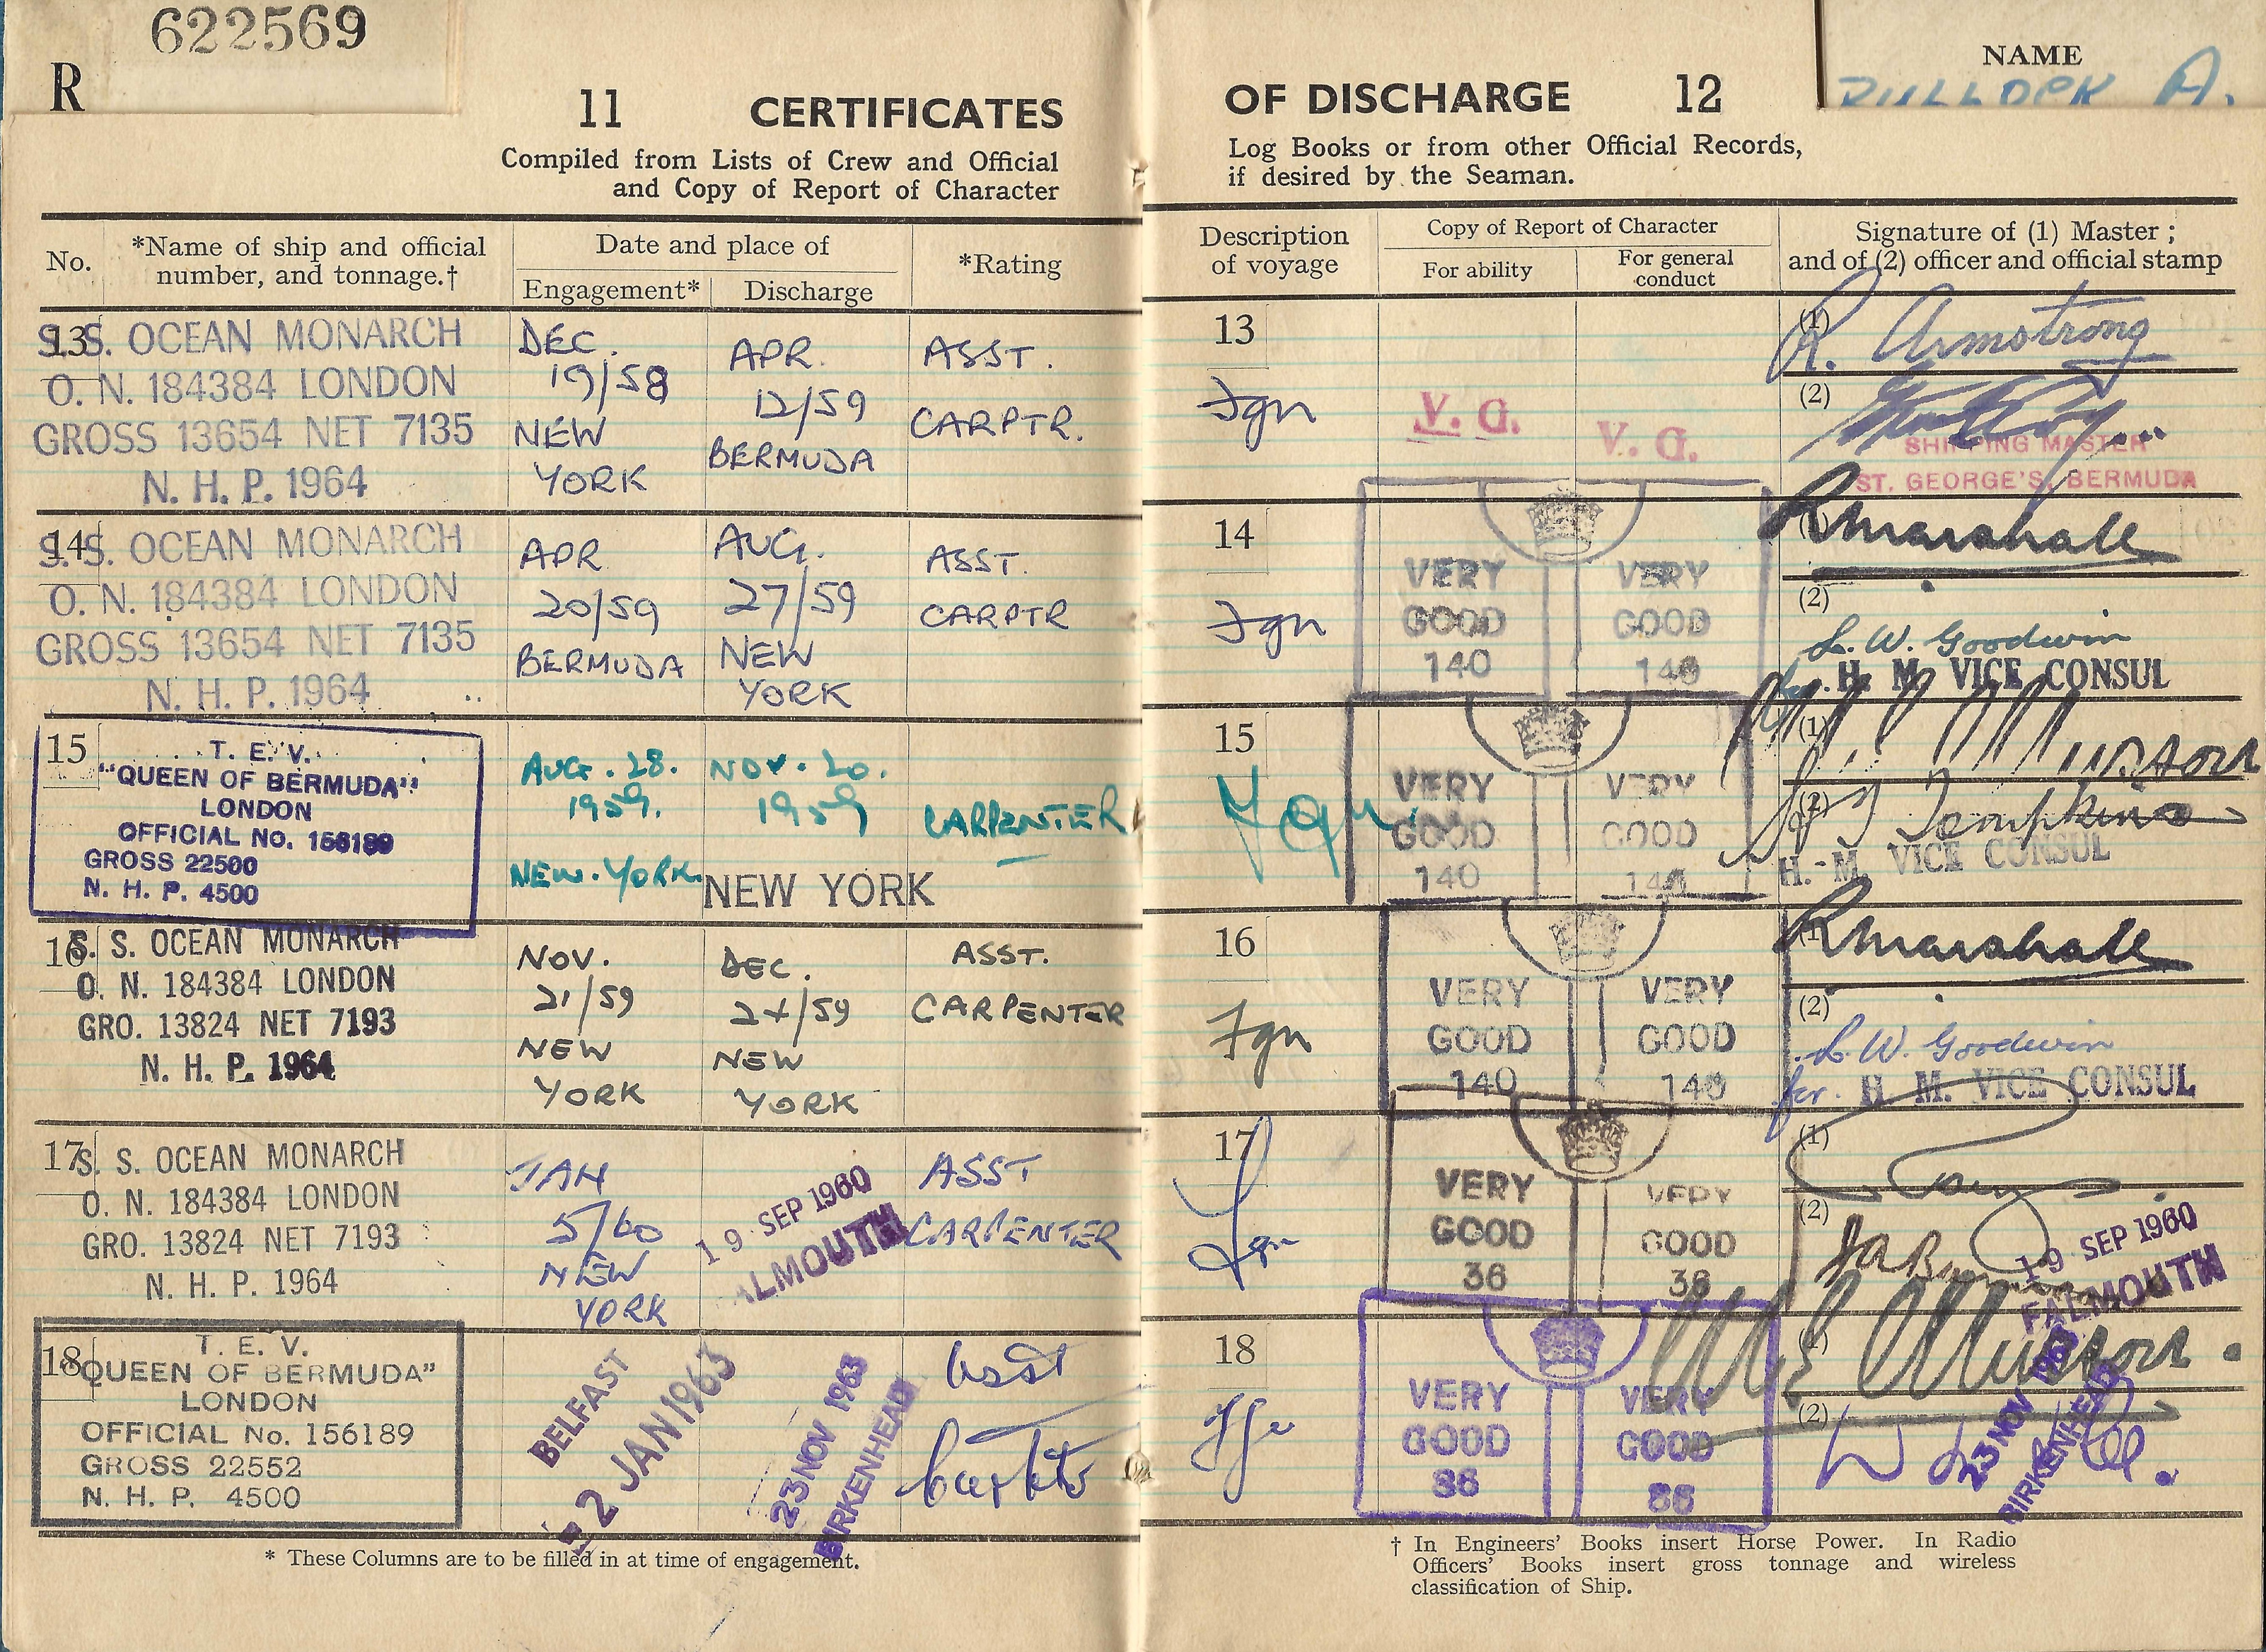 622569
R
11 CERTIFICATES
Compiled from Lists of Crew and Official
and Copy of Report of Character
No.
*Name of ship and official
number, and tonnage.†
Date and place of
Engagement*
Discharge
*Rating
13
S.S. OCEAN MONARCH
O. N. 184384 LONDON
GROSS 13654 NET 7135
N. H. P. 1964
DEC.
19/58
NEW
YORK
APR.
12/59
BERMUDA
ASST.
CARPTR.
14
S.S. OCEAN MONARCH
O. N. 184384 LONDON
GROSS 13654 NET 7135
N. H. P. 1964
APR
20/59
BERMUDA
AUG.
27/59
NEW
YORK
ASST.
CARPTR
15
T. E. V.
"QUEEN OF BERMUDA"
LONDON
OFFICIAL No. 156189
GROSS 22500
N. H. P. 4500
AUG. 28.
1959.
NEW. YORK.
NOV. 20.
1959
NEW YORK
CARPENTER
16
S. S. OCEAN MONARCH
O. N. 184384 LONDON
GRO. 13824 NET 7193
N. H. P. 1964
NOV.
21/59
NEW
YORK
DEC.
24/59
NEW
YORK
ASST.
CARPENTER
17
S. S. OCEAN MONARCH
O. N. 184384 LONDON
GRO. 13824 NET 7193
N. H. P. 1964
JAN
5/60
NEW
YORK
19 SEP 1960
ALMOUTH
ASST
CARPENTER
18
T. E. V.
"QUEEN OF BERMUDA"
LONDON
OFFICIAL No. 156189
GROSS 22552
N. H. P. 4500
BELFAST
2 JAN 1963
23 NOV 1963
BIRKENHEAD
Asst
* These Columns are to be filled in at time of engagement.
OF DISCHARGE 12
NAME
A.
Log Books or from other Official Records,
if desired by the Seaman.
Description
of voyage
Copy of Report of Character
For ability
For general
conduct
Signature of (1) Master ;
and of (2) officer and official stamp
13
Fgn
V. G.
V. G.
(1)
R. Armstrong
(2)
SHIPPING MASTER
ST. GEORGE'S, BERMUDA
14
Fgn
VERY
GOOD
140
VERY
GOOD
140
(1)
R Marshall
(2)
L. W. Goodwin
for. H. M. VICE CONSUL
15
Fgn
VERY
GOOD
140
VERY
GOOD
140
(1)
(2)
Tompkins
H. M. VICE CONSUL
16
Fgn
VERY
GOOD
140
VERY
GOOD
140
(1)
R Marshall
(2)
L. W. Goodwin
for. H. M. VICE CONSUL
17
Fgn
VERY
GOOD
36
VERY
GOOD
36
(1)
(2)
19 SEP 1960
FALMOUTH
18
VERY
GOOD
86
VERY
GOOD
86
(1)
(2)
23 NOV 1963
BIRKENHEAD
† In Engineers' Books insert Horse Power. In Radio
Officers' Books insert gross tonnage and wireless
classification of Ship.